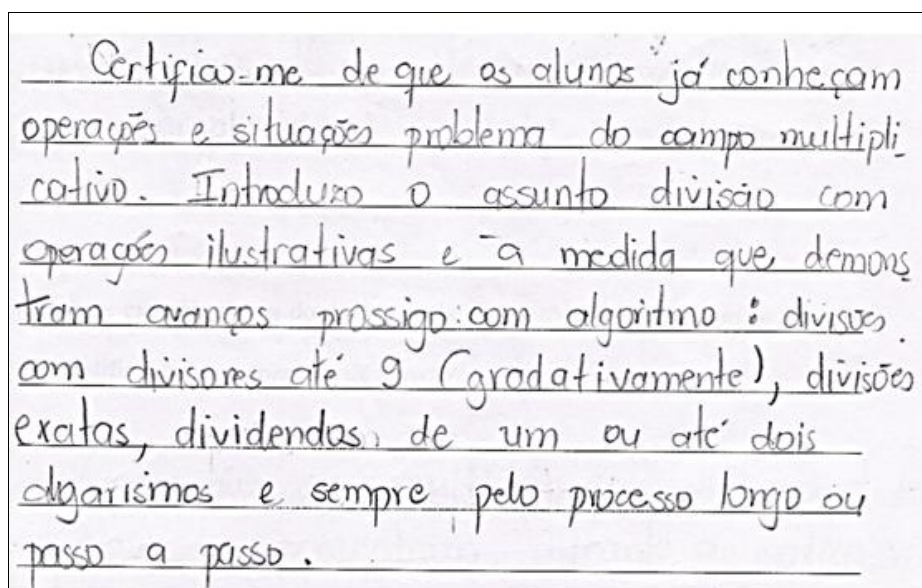 Certifico-me de que os alunos já conheçam
operações e situações problema do campo multipli
cativo. Introduzo o assunto divisão com
operações ilustrativas e a medida que demons
tram avanços prossigo com algoritmo : divisões
com divisores até 9 (gradativamente), divisões
exatas, dividendos, de um ou até dois
algarismos e sempre pelo processo longo ou
passo a passo.